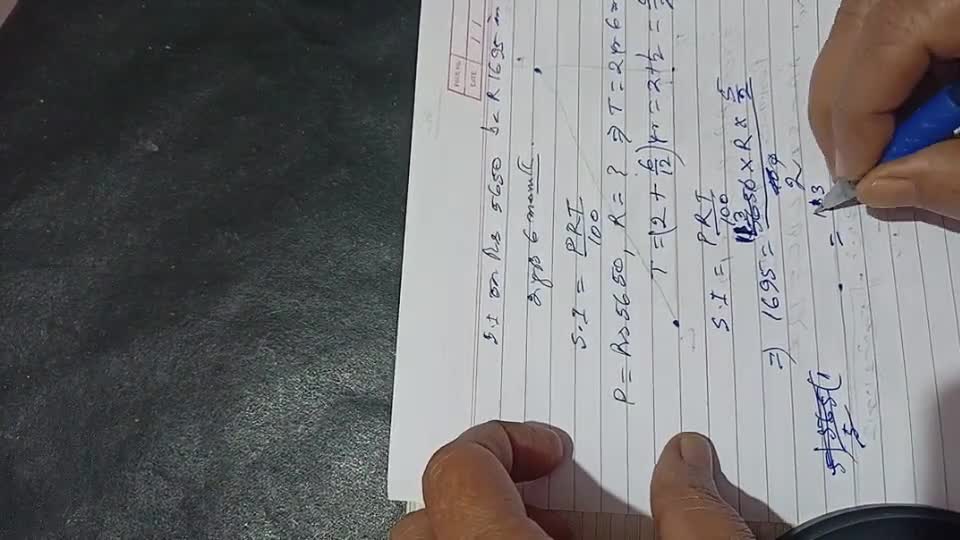 PAGE NO.
DATE / /
S.I on Rs 5650 be R 1695 in
2 yrs 6 month.
S.I = PRT/100
P = Rs 5650, R = ? ⇒ T = 2 yr 6 m
T = (2 + 6/12) yr = 2 + 1/2 =
S.I = PRT/100
⇒) 1695 = 5650 × R × 5/2
2
5) 565 (1
5
=